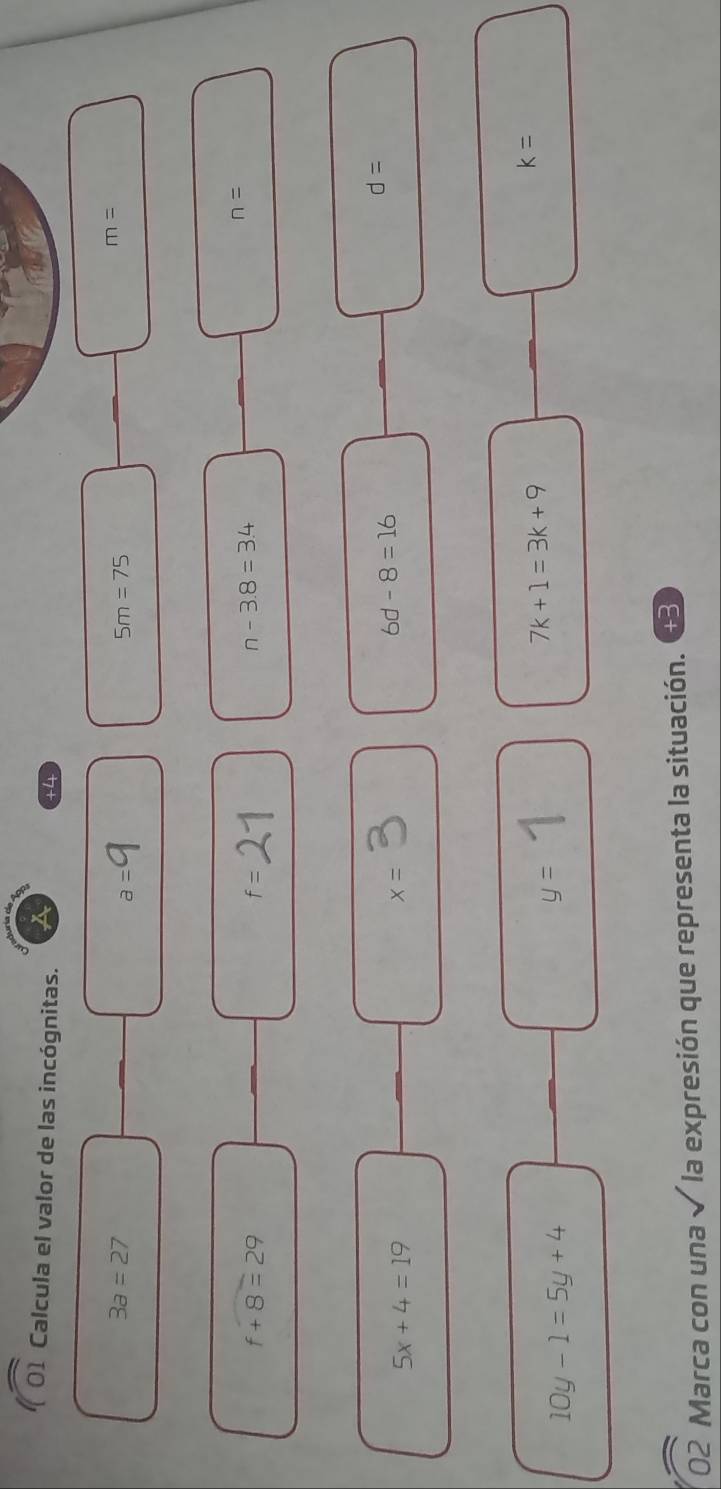 Curaduría de Apps
A
01 Calcula el valor de las incógnitas. +4
3a = 27 a = 9 5m = 75 m =
f + 8 = 29 f = 21 n - 3.8 = 3.4 n =
5x + 4 = 19 x = 3 6d - 8 = 16 d =
10y - 1 = 5y + 4 y = 1 7k + 1 = 3k + 9 k =
02 Marca con una ✓ la expresión que representa la situación. +3